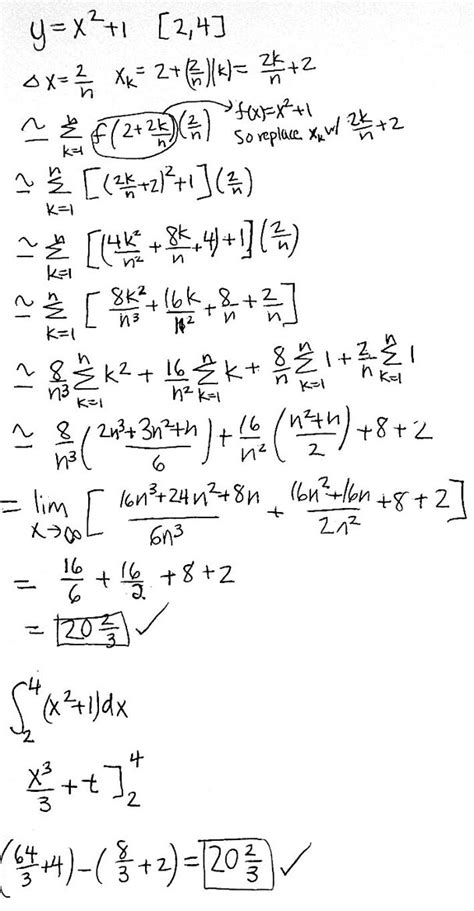 y = x² + 1 [2,4]
Δx = 2/n x_k = 2 + (2/n)(k) = 2k/n + 2
≃ Σ_{k=1}^{n} f(2 + 2k/n)(2/n) → f(x) = x² + 1
So replace x_k w/ 2k/n + 2
≃ Σ_{k=1}^{n} [(2k/n + 2)² + 1](2/n)
≃ Σ_{k=1}^{n} [(4k²/n² + 8k/n + 4) + 1](2/n)
≃ Σ_{k=1}^{n} [8k²/n³ + 16k/n² + 8/n + 2/n]
≃ 8/n³ Σ_{k=1}^{n} k² + 16/n² Σ_{k=1}^{n} k + 8/n Σ_{k=1}^{n} 1 + 2/n Σ_{k=1}^{n} 1
≃ 8/n³ ((2n³ + 3n² + n)/6) + 16/n² ((n² + n)/2) + 8 + 2
= lim_{x→∞} [(16n³ + 24n² + 8n)/6n³ + (16n² + 16n)/2n² + 8 + 2]
= 16/6 + 16/2 + 8 + 2
= 20 2/3 ✓
∫_2^4 (x² + 1)dx
x³/3 + t ]_2^4
(64/3 + 4) - (8/3 + 2) = 20 2/3 ✓